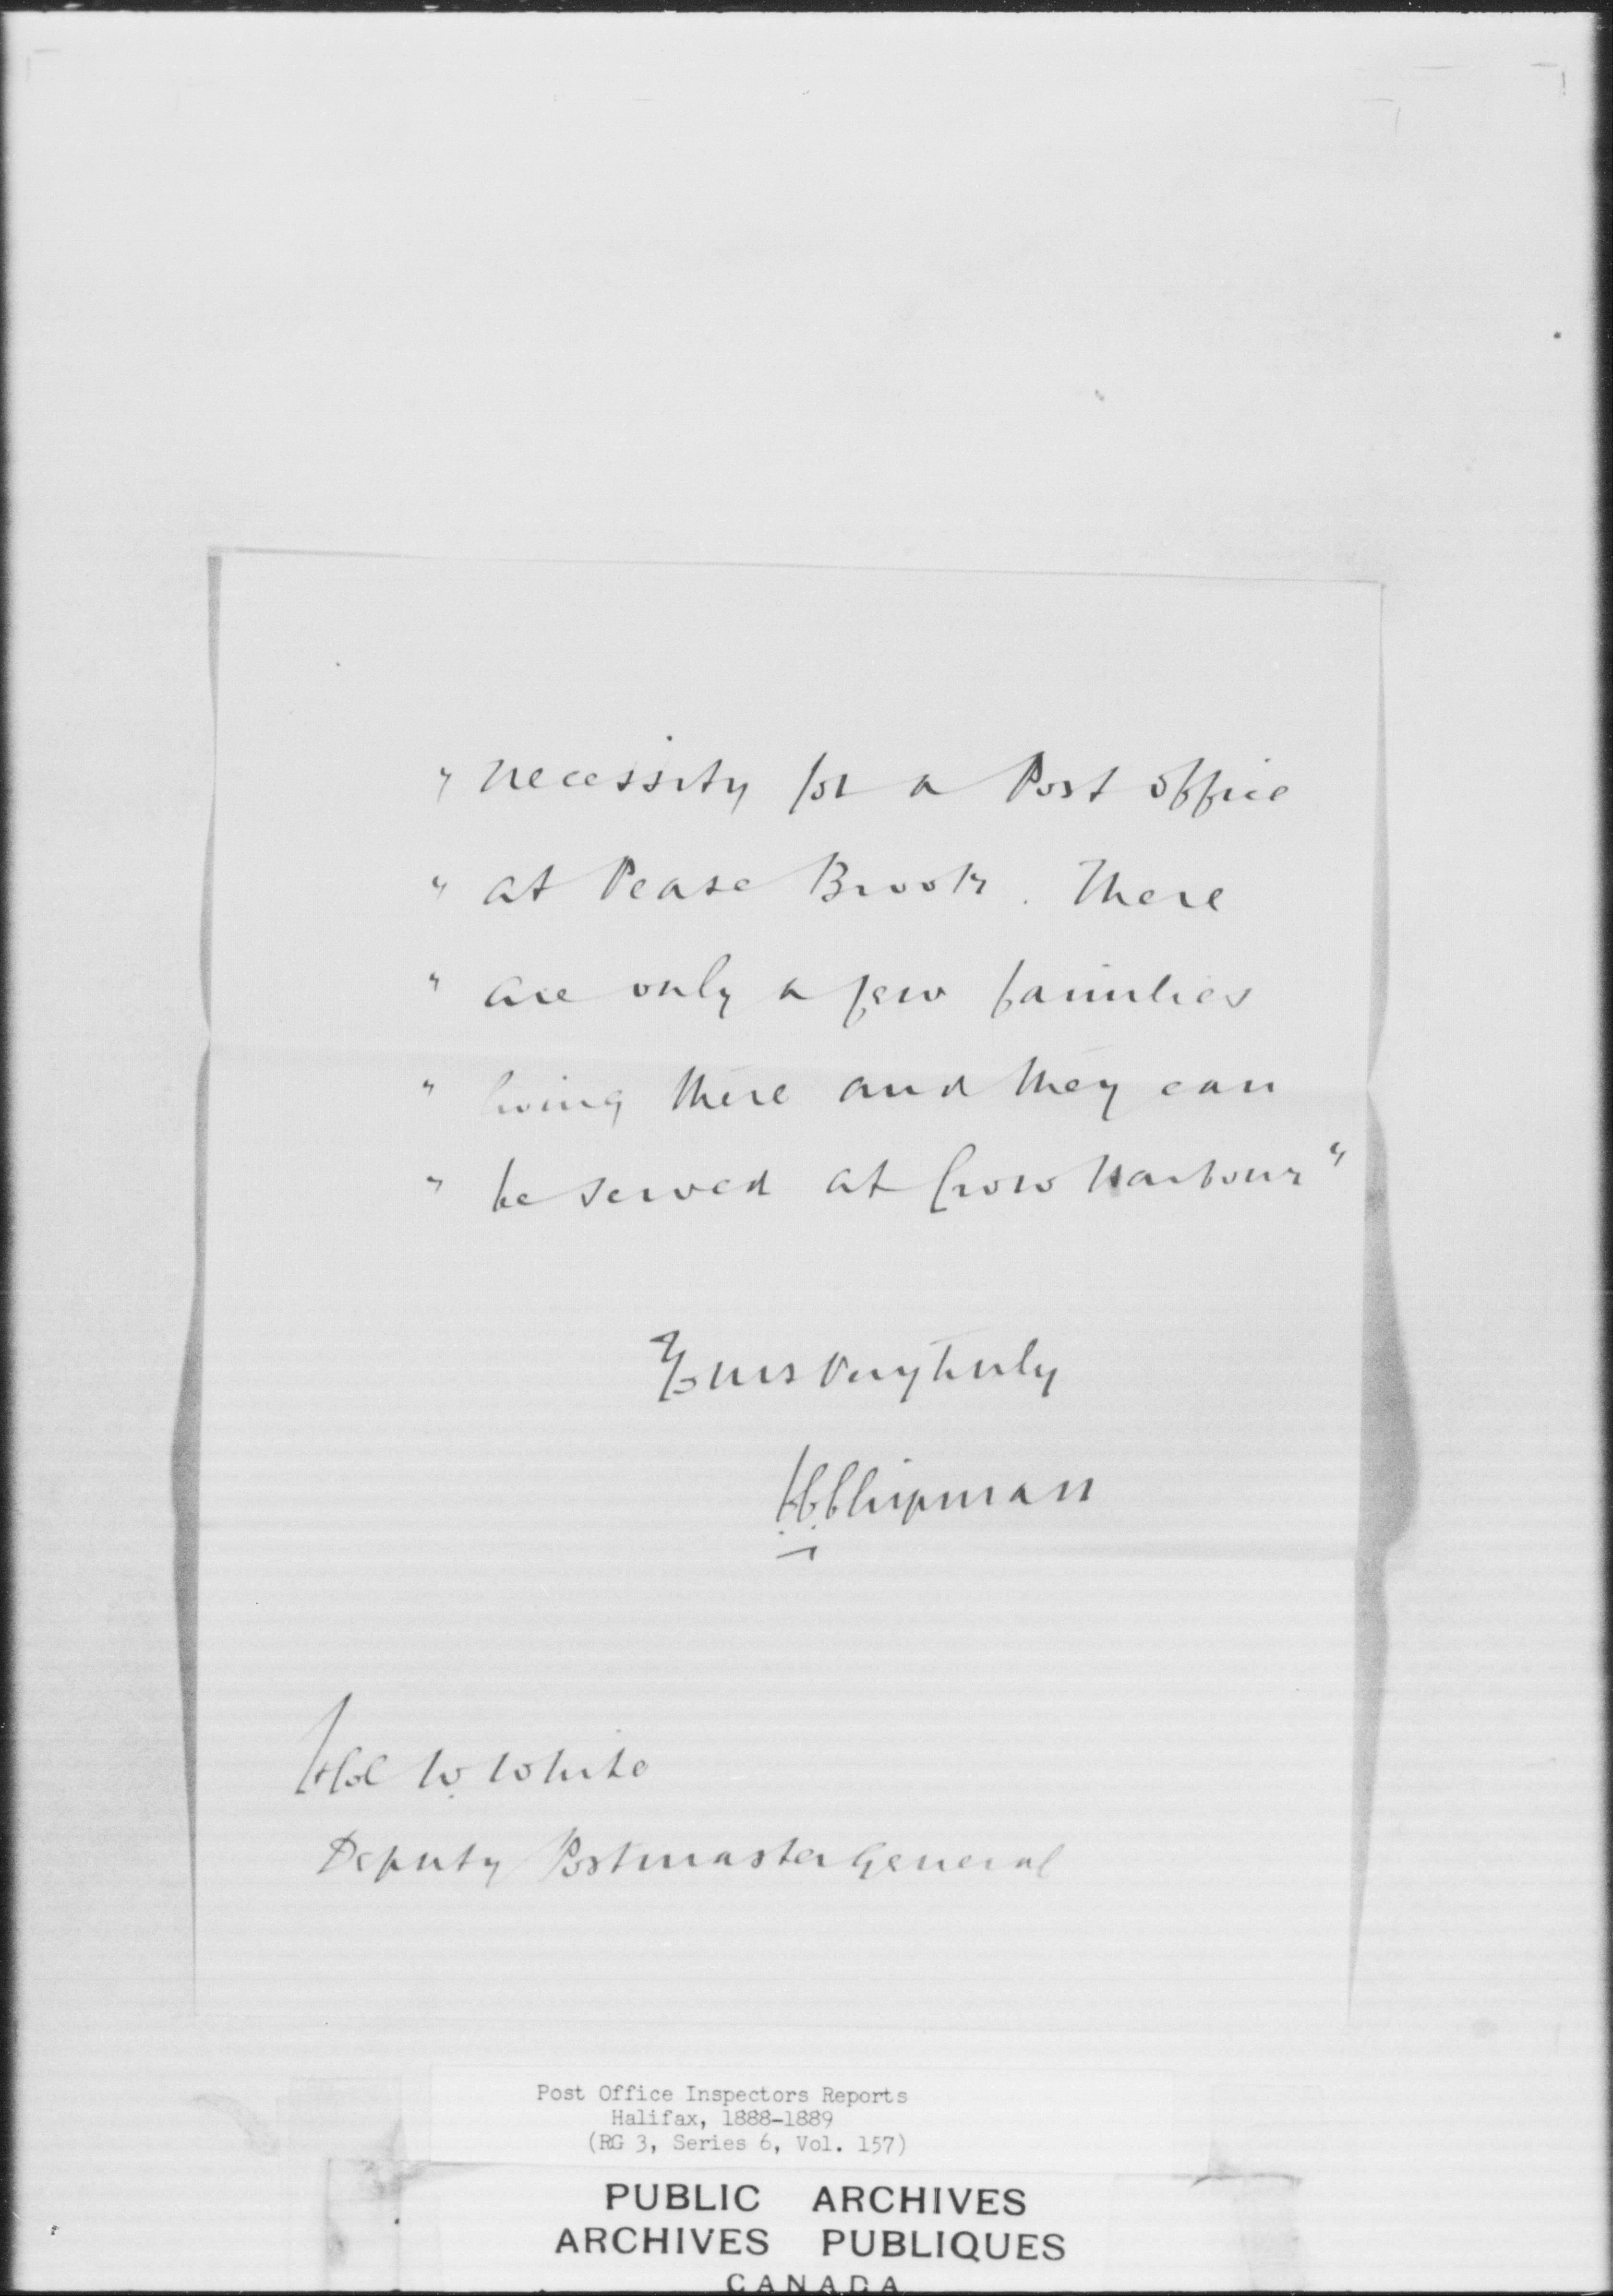 " necessity for a Post office
" at Pease Brook. There
" are only a few families
" living there and they can
" be served at Crow Harbour "
Yours very truly
Chipman
W. White
Deputy Postmaster General
Post Office Inspectors Reports
Halifax, 1888-1889
(RG 3, Series 6, Vol. 157)
PUBLIC ARCHIVES
ARCHIVES PUBLIQUES
CANADA